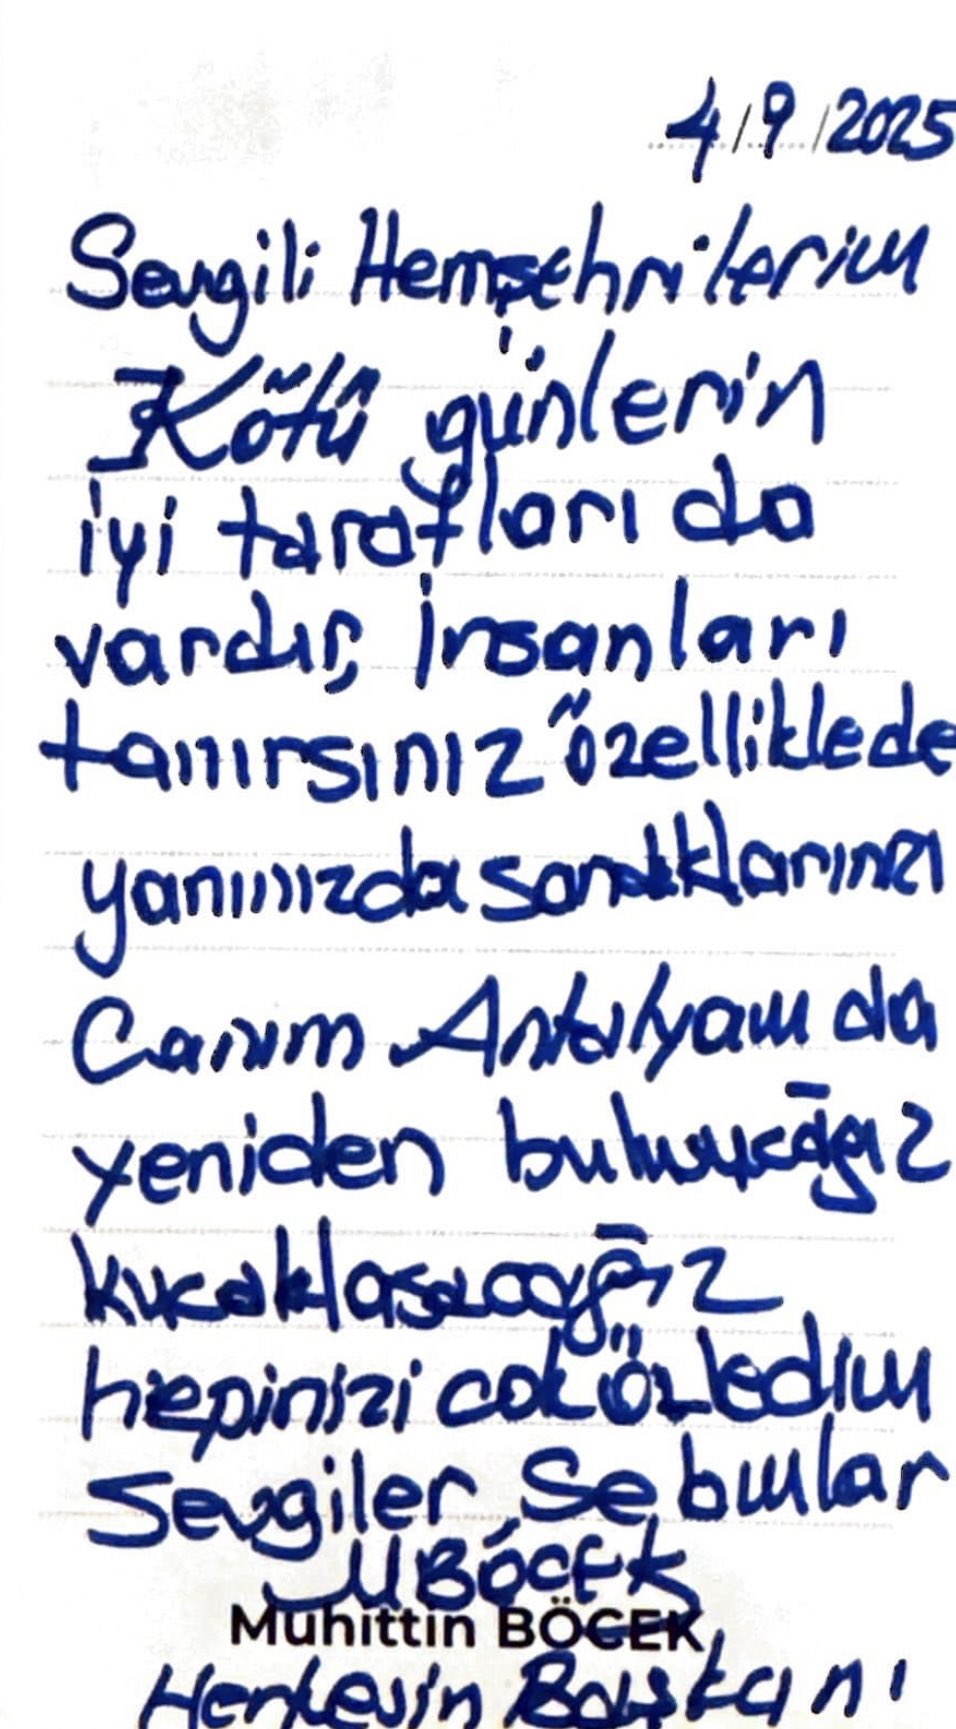 4/9/2025
Sevgili Hemşehrilerim
Kötü günlerin
iyi tarafları da
vardır, İnsanları
tanırsınız özelliklede
yanınızda sandıklarınızı
Canım Antalyam da
yeniden buluşucağız
kucaklaşacağız
hepinizi çok özledim
Sevgiler
M BÖCEK
Muhittin BÖCEK
Herkesin Başkanı